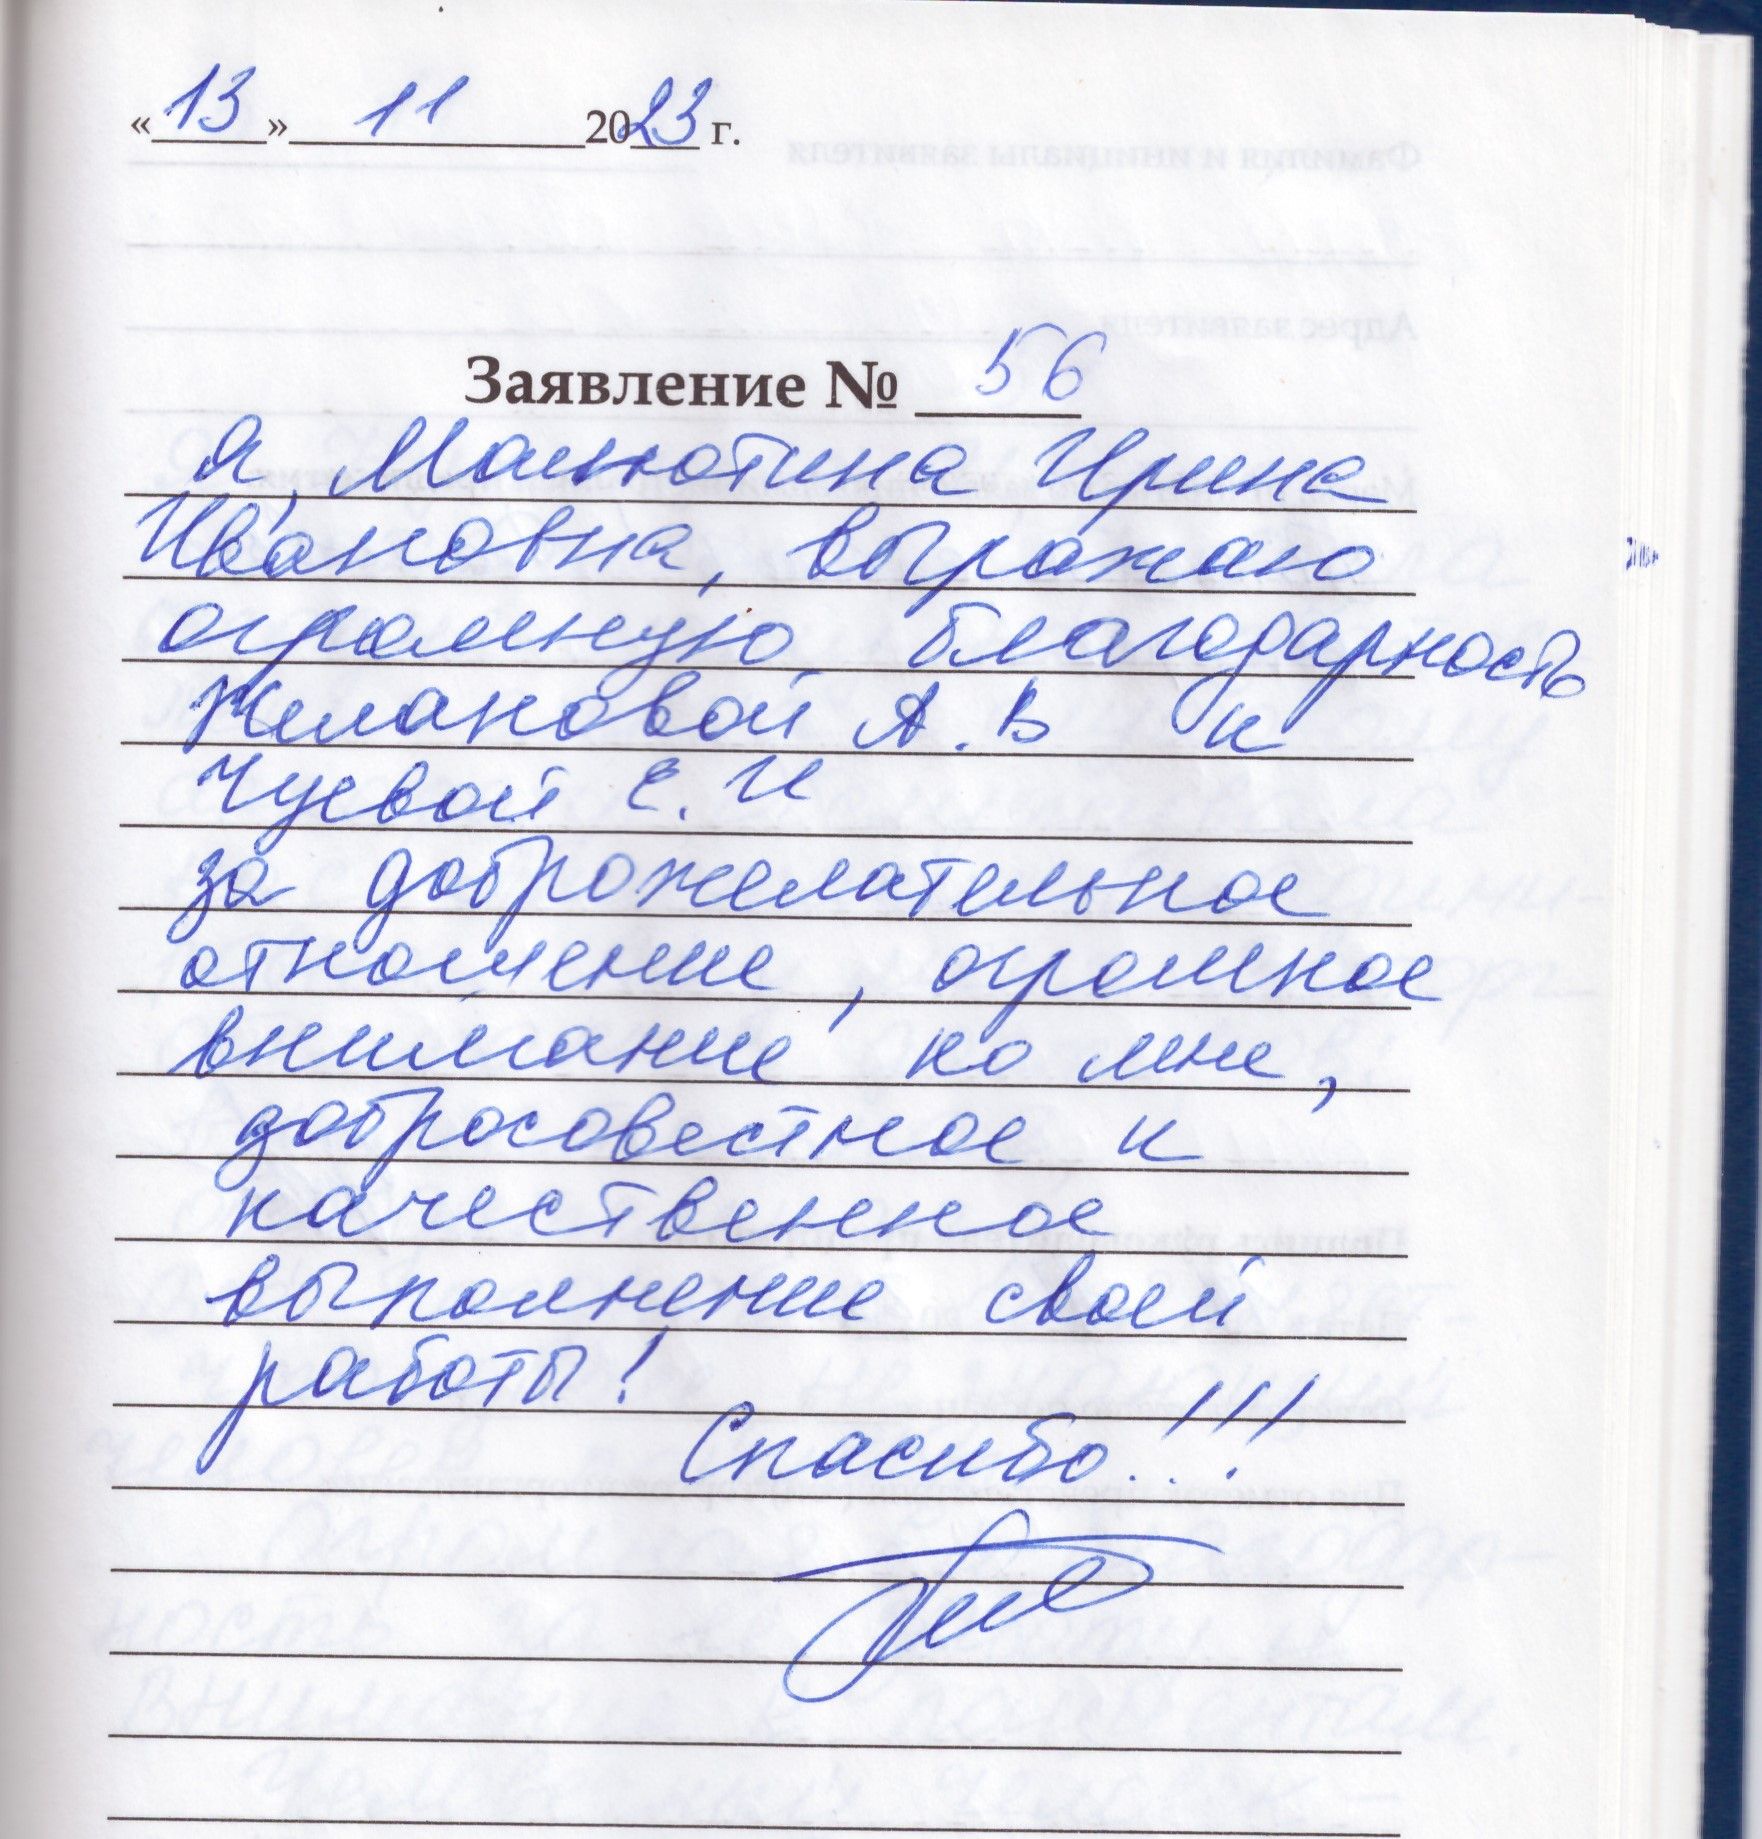 «13» 11 2023 г.
Заявление № 56
Я, Манютина Ирина
Ивановна, выражаю
огромную благодарность
Желановой А.В и
Чуевой Е.И
за доброжелательное
отношение, огромное
внимание ко мне,
добросовестное и
качественное
выполнение своей
работы!
Спасибо!!!